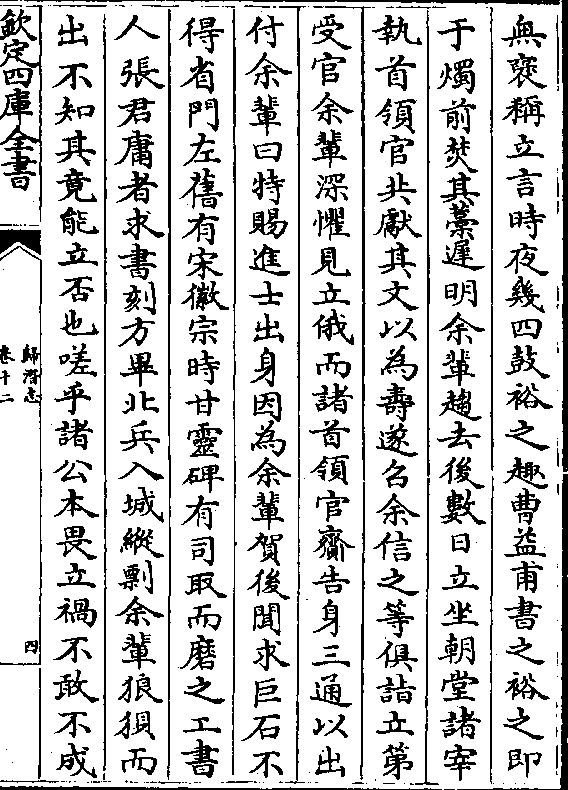 無褒稱立言時夜幾四鼓裕之趣曹益甫書之裕之即
于燭前焚其藁遲明余輩趨去後數日立坐朝堂諸宰
執首領官共獻其文以為壽遂召余信之等俱詣立第
受官余輩深懼見立俄而諸首領官齎告身三通以出
付余輩曰特賜進士出身因為余輩賀後聞求巨石不
得省門左舊有宋徽宗時甘靈碑有司取而磨之工書
人張君庸者求書刻方畢北兵入城縱剽余輩狼狽而
出不知其竟能立否也嗟乎諸公本畏立禍不敢不成
欽定四庫全書
歸潛志
卷十二
四